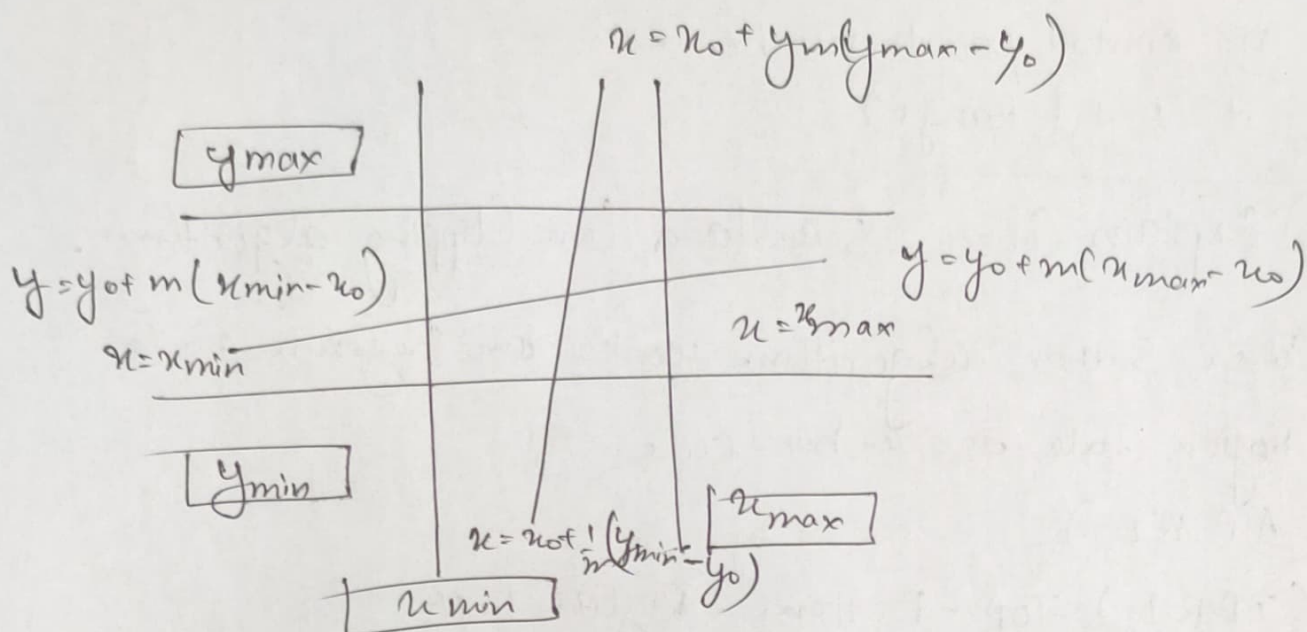 x = x₀ + ym(ymax - y₀)
ymax
y = y₀ + m(xmin - x₀)
y = y₀ + m(xmax - x₀)
x = xmax
x = xmin
ymin
xmax
x = x₀ + 1/m (ymin - y₀)
xmin